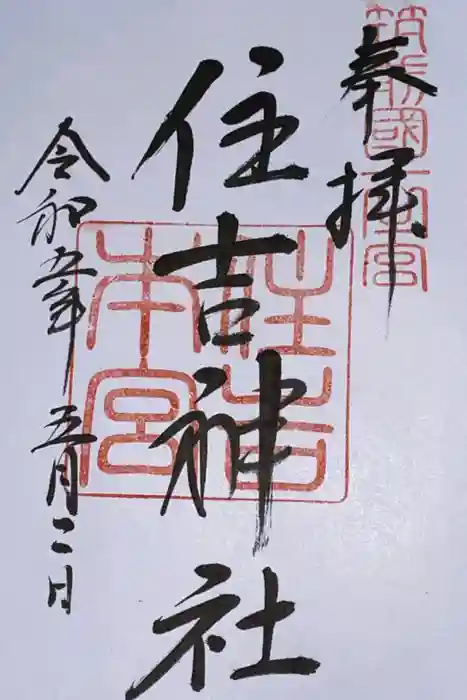 奉拝
筑前國一之宮
住吉神社
住吉本宮
令和五年五月二日